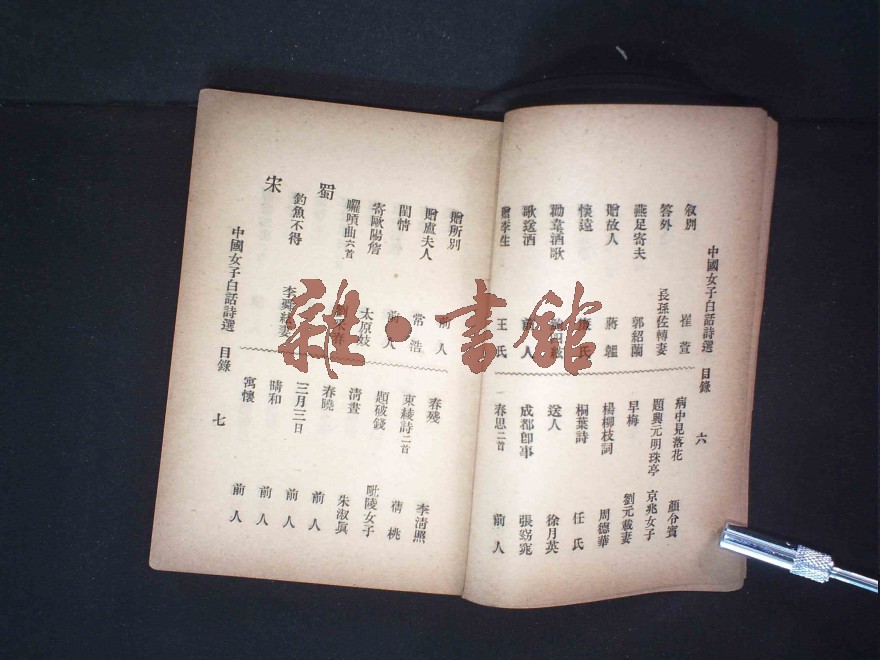 中國女子白話詩選 目錄 六
敘別 崔萱
答外 長孫佐轉妻
燕足寄夫 郭紹蘭
贈故人 蔣氳
懷遠 氏
勸韋酒歌
歌送酒 前人
贈李生 王氏
病中見落花 顏令賓
題興元明珠亭 京兆女子
早梅 劉元載妻
楊柳枝詞 周德華
桐葉詩 任氏
送人 徐月英
成都即事 張窈窕
春思二首 前人
贈所別 前人
贈盧夫人 常浩
閨情 前人
寄歐陽詹 太原妓
囉嗊曲六首
蜀
釣魚不得 李舜絃妻
宋
春殘 李清照
束綾詩二首 蒨桃
題破錢 毗陵女子
清晝 朱淑眞
春曉 前人
三月三日 前人
晴和 前人
寓懷 前人
中國女子白話詩選 目錄 七
雜·書館